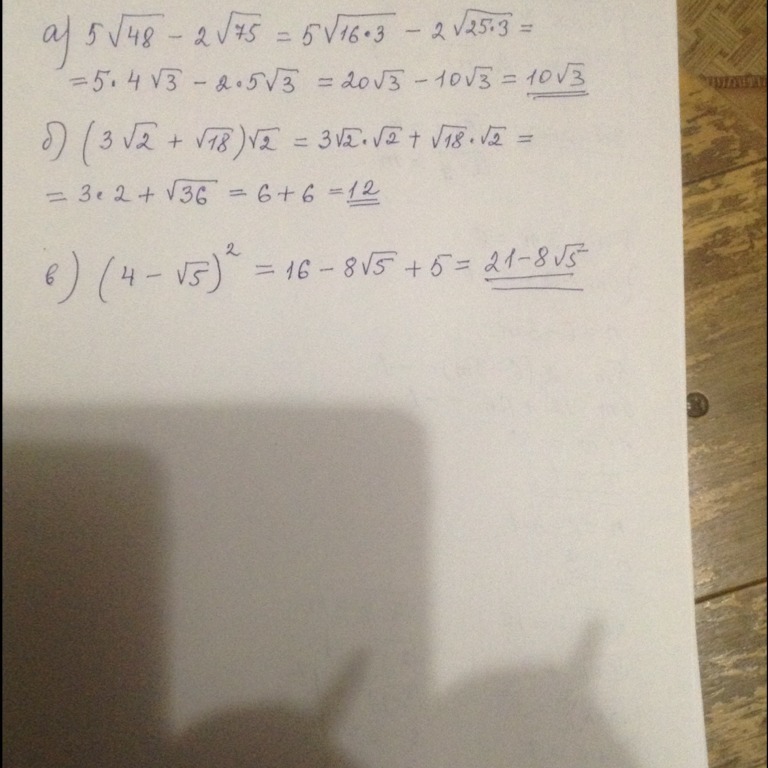 а) 5√48 − 2√75 = 5√16·3 − 2√25·3 =
= 5·4√3 − 2·5√3 = 20√3 − 10√3 = 10√3
б) (3√2 + √18)√2 = 3√2·√2 + √18·√2 =
= 3·2 + √36 = 6 + 6 = 12
в) (4 − √5)² = 16 − 8√5 + 5 = 21 − 8√5